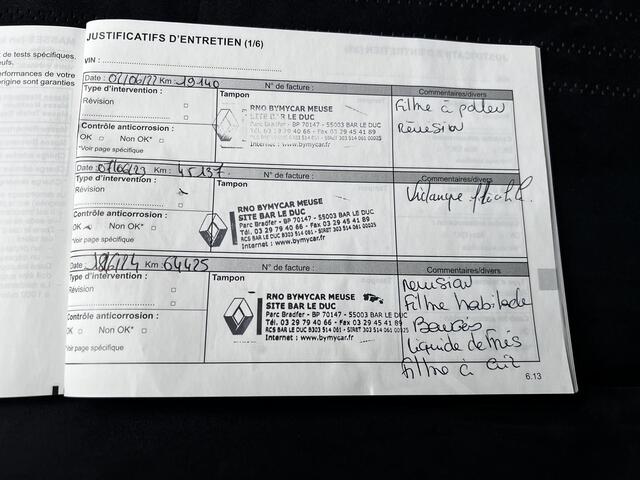 t de tests spécifiques.
eufs.
erformances de votre
origine sont garanties
JUSTIFICATIFS D'ENTRETIEN (1/6)
VIN :
Date : 02/06/22 Km : 19140 N° de facture : Commentaires/divers
Type d'intervention : Tampon
Révision
Contrôle anticorrosion :
OK Non OK*
*Voir page spécifique
RNO BYMYCAR MEUSE
SITE BAR LE DUC
Parc Bradfer - BP 70147 - 55003 BAR LE DUC
Tél. 03 29 79 40 66 - Fax 03 29 45 41 89
RCS BAR LE DUC B303 514 061 - SIRET 303 514 061 00025
Internet : www.bymycar.fr
Filtre à pollen
Révision
Date : 07/06/23 Km : 45137 N° de facture : Commentaires/divers
Type d'intervention : Tampon
Révision
Contrôle anticorrosion :
OK Non OK*
*Voir page spécifique
RNO BYMYCAR MEUSE
SITE BAR LE DUC
Parc Bradfer - BP 70147 - 55003 BAR LE DUC
Tél. 03 29 79 40 66 - Fax 03 29 45 41 89
RCS BAR LE DUC B 303 514 061 - SIRET 303 514 061 00025
Internet : www.bymycar.fr
Vidange
Date : 18/6/24 Km 64425 N° de facture : Commentaires/divers
Type d'intervention : Tampon
Révision
Contrôle anticorrosion :
OK Non OK*
*Voir page spécifique
RNO BYMYCAR MEUSE
SITE BAR LE DUC
Parc Bradfer - BP 70147 - 55003 BAR LE DUC
Tél : 03 29 79 40 66 - Fax 03 29 45 41 89
RCS BAR LE DUC B 303 514 061 - SIRET 303 514 061
Internet : www.bymycar.fr
revision
Filtre habitacle
Bougies
Liquide de freins
Filtre à air
6.13